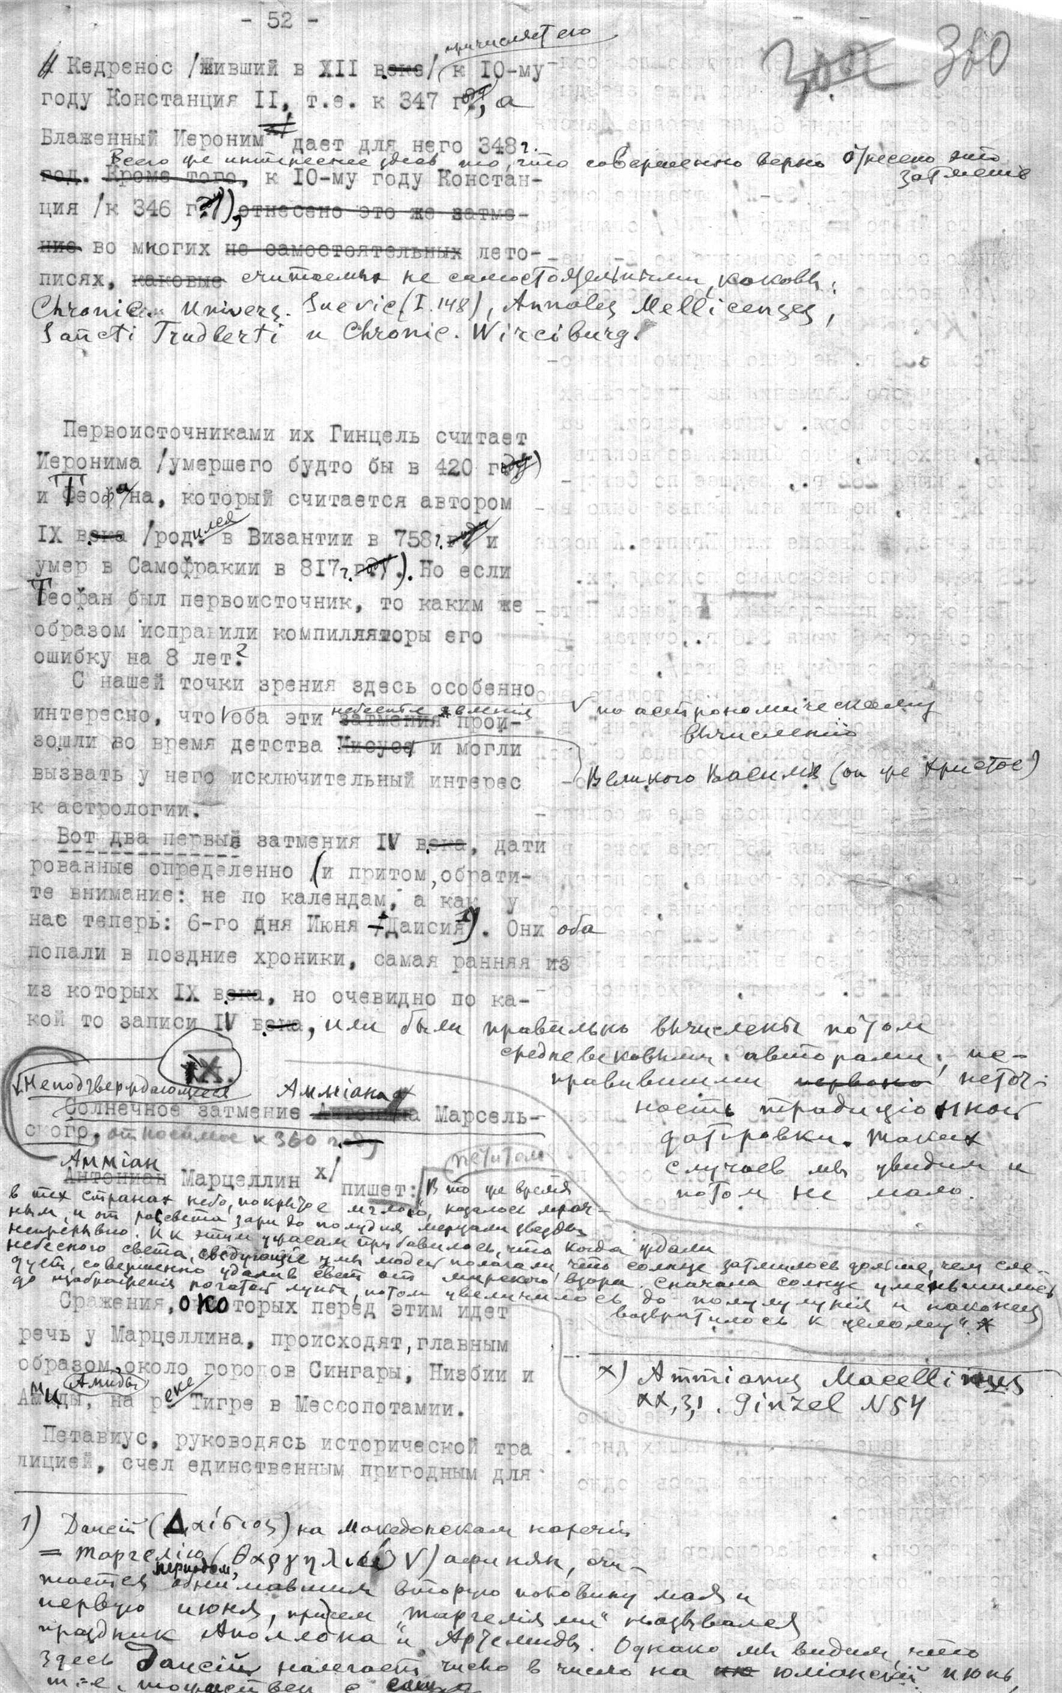 - 52 -
380 380
причисляет его
Кедренос /Живший в XII века/ к 10-му
году Констанция II, т.е. к 347 году, а
Блаженный Иероним дает для него 348 г.
Всего же интереснее здесь то, что совершенно верно отнесено это
затмение
год. Кроме того, к 10-му году Констан-
ция /к 346 г.), отнесено это же затме-
ние во многих не самостоятельных лето-
писях, каковые считаемых не самостоятельными, каковы:
Chronic. Univers. Suevic (I.148), Annales Mellicenses,
Sancti Trudberti и Chronic. Wirciburg.
Первоисточниками их Гинцель считает
Иеронима /умершего будто бы в 420 году)
и Теофана, который считается автором
IX века /родился в Византии в 758 г. году и
умер в Самофракии в 817 г. году.). Но если
Теофан был первоисточник, то каким же
образом исправили компилляторы его
ошибку на 8 лет?
С нашей точки зрения здесь особенно
небесные явления
интересно, что оба эти затмения прои-
по астрономическому
вычислению
зошли во время детства Иисуса и могли
Великого Василия (он же Христос)
вызвать у него исключительный интерес
к астрологии.
Вот два первые затмения IV века, дати
рованные определенно (и притом, обрати-
те внимание: не по календам, а как у
нас теперь: 6-го дня Июня - Даисия 1)). Они оба
попали в поздние хроники, самая ранняя из
из которых IX века, но очевидно по ка-
кой то записи IV века, или были правильно вычислены потом
средневековыми авторами, ис-
правившими неточ-
ность традиционной
датировки. Таких
случаев мы увидим и
потом не мало.
IX.
Неподтверждающееся
Аммiана
Солнечное затмение Антониана Марсель-
ского, относимое к 360 г.
Аммiан
Антониан Марцеллин x/ пишет:
петитом
„В то же время
в тех странах небо, покрытое мглою, казалось мрач-
ным, и от рассвета зари до полудня мерцали звезды
непрерывно. И к этим ужасам прибавилось, что когда
небесного света, умы людей полагали, что солнце затмилось дольше, чем сле-
дует, совершенно удалив свет от мирского взора. Сначала солнце уменьшилось
до изображения рогатой луны, потом увеличилось до полулуния и наконец
возвратилось к целому“.
Сражения, о которых перед этим идет
речь у Марцеллина, происходят, главным
образом, около городов Сингары, Низбии и
Амиды
Амиды, на реке Тигре в Мессопотамии.
x) Ammianus Macellinus
XX, 3,1. Ginzel N 54
Петавиус, руководясь исторической тра
дицией, счел единственным пригодным для
1) Даисий (Δαίσιος) на Македонском наречiи
= Таргелiю (Θαργηλιών) афинян, счи-
тается периодом, обнимавшим вторую половину мая и
первую июня, причем „Таргелiями“ назывался
праздник Аполлона и Артемиды. Однако мы видим, что
здесь Даисий налегает число в число на юлианский июнь,
т.-е. тождествен с